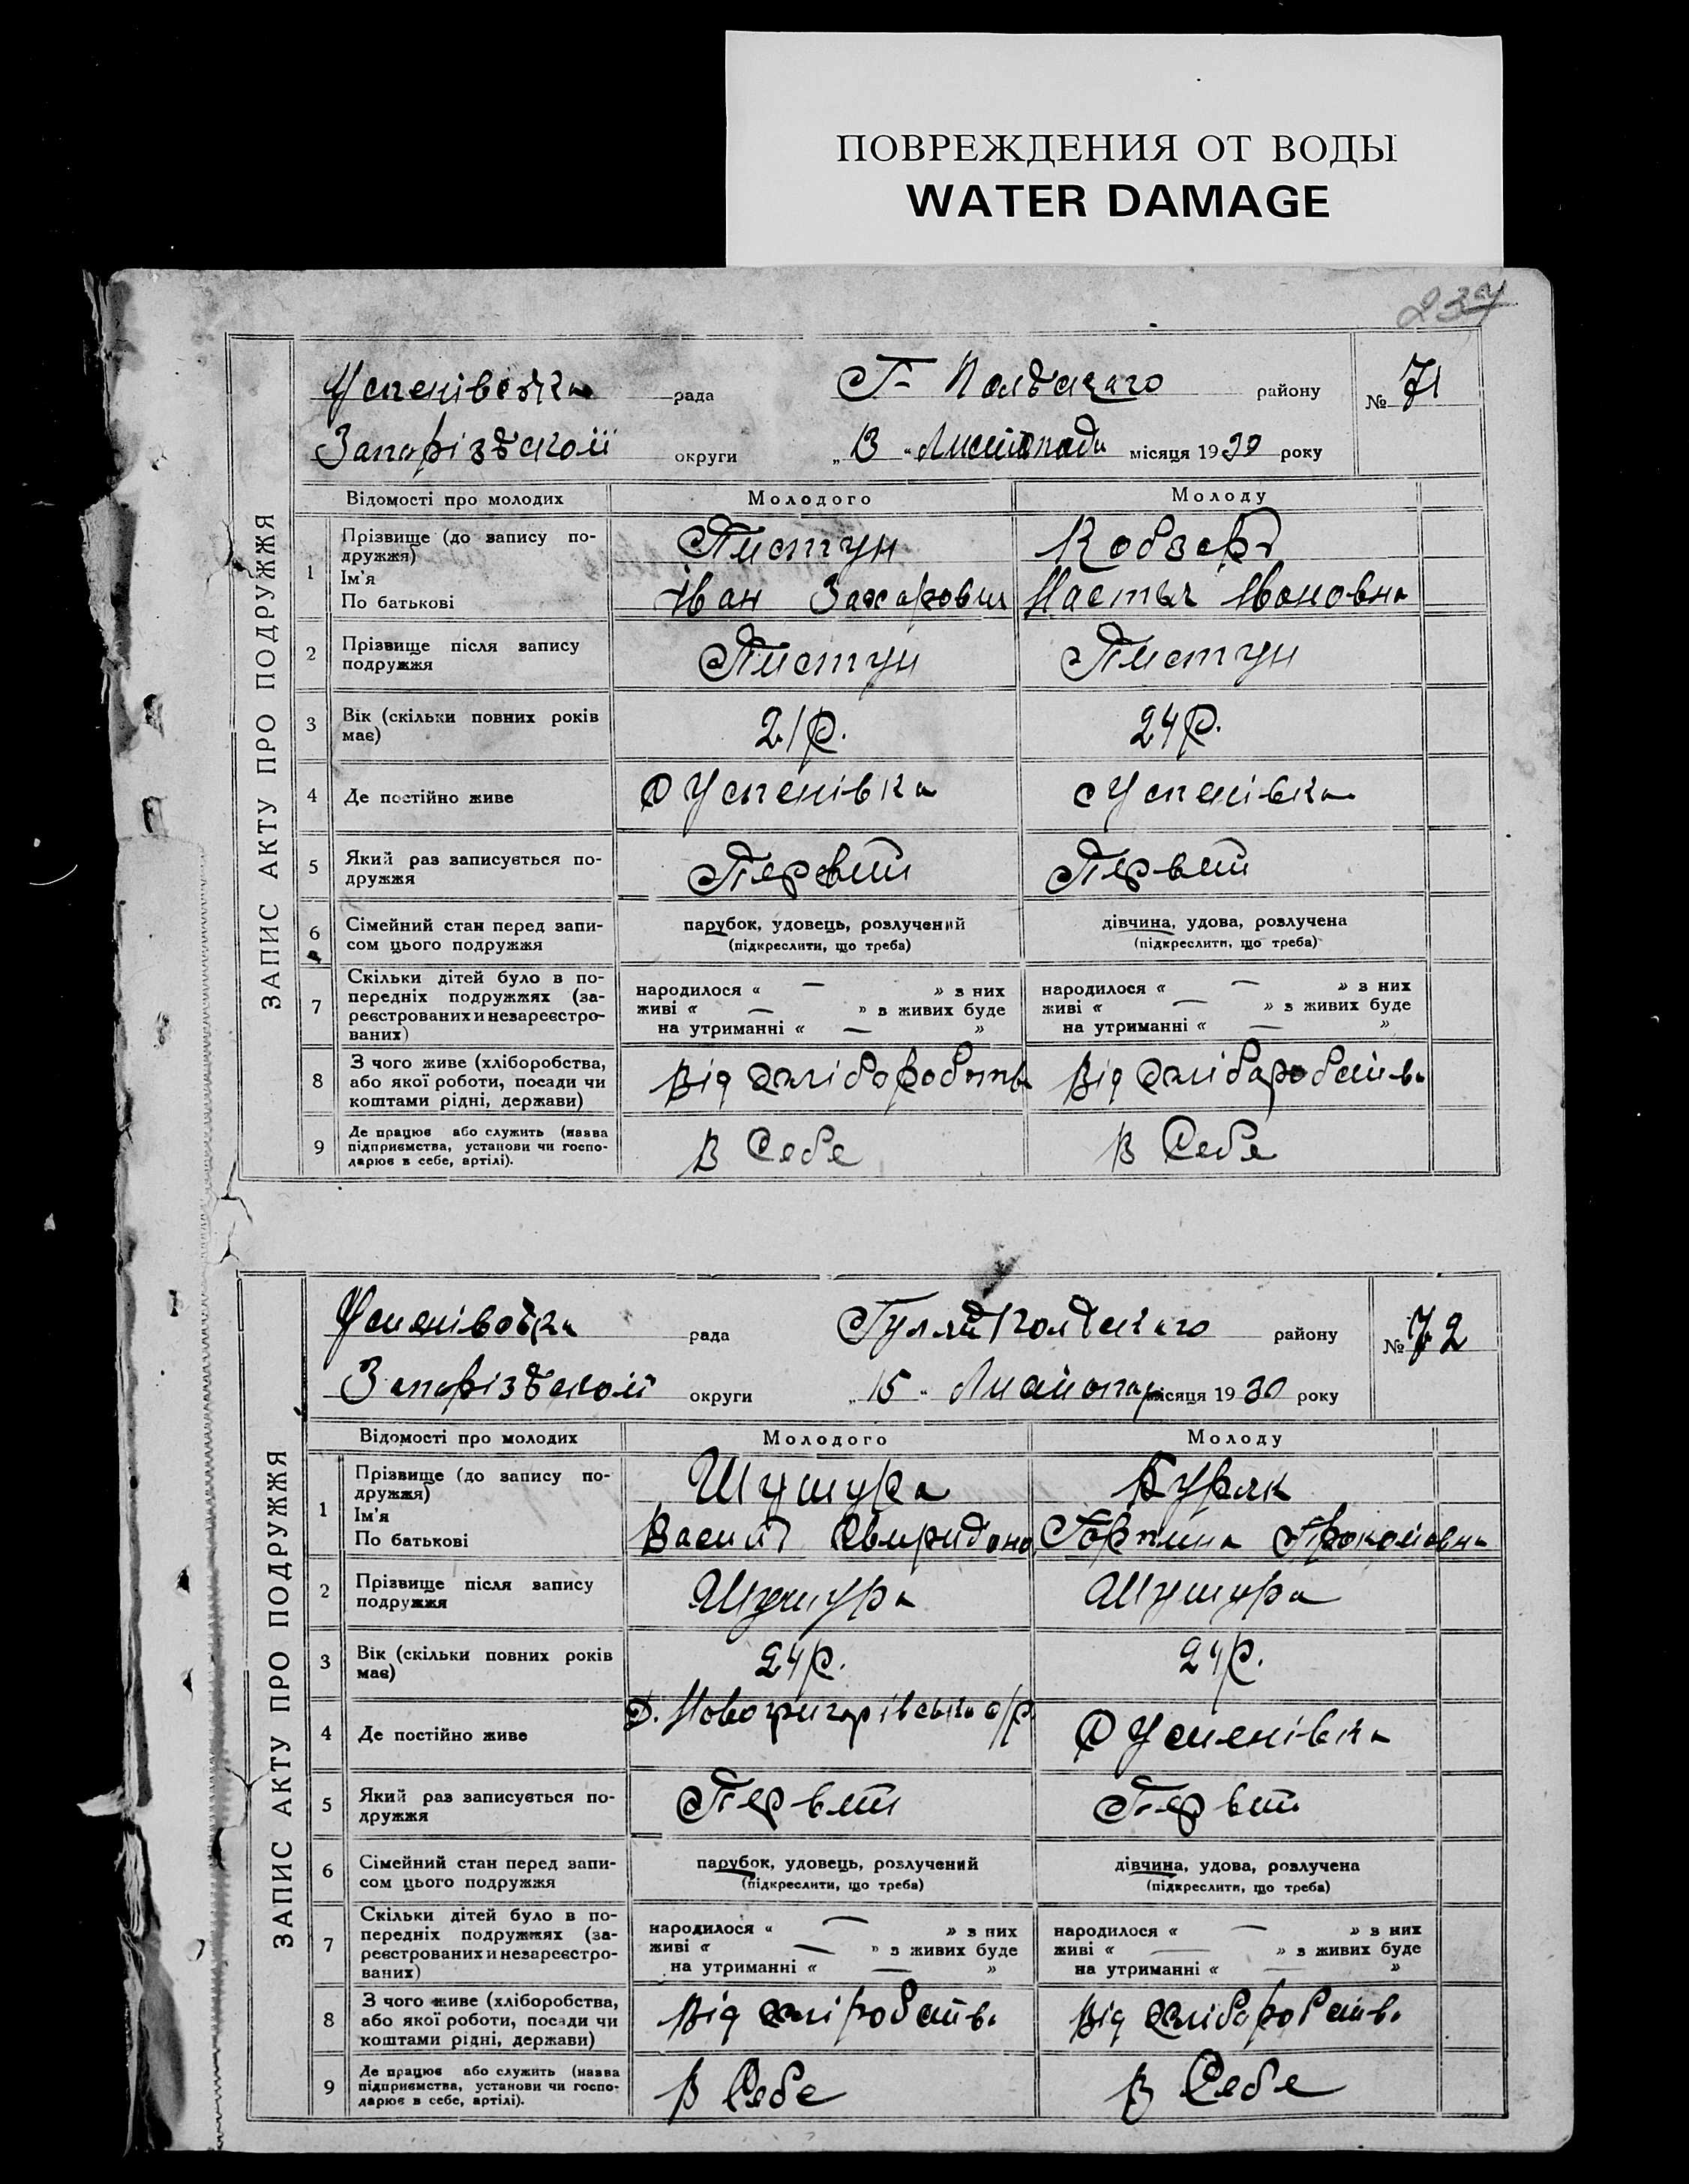 ПОВРЕЖДЕНИЯ ОТ ВОДЫ
WATER DAMAGE
ЗАПИС АКТУ ПРО ПОДРУЖЖЯ
рада Г- Польського району № 71
Запорізькоїї округи „13 " Листопада місяця 1930 року
Відомості про молодих Молодого Молоду
1 Прізвище (до запису по-
дружжя) Пистун Кобзарь
Ім'я
По батькові Іван Захарович Настья Івановна
2 Прізвище після запису
подружжя Пистун Пистун
3 Вік (скільки повних років
має) 21р. 24р.
4 Де постійно живе С Успенівка с Успенівка
5 Який раз записується по-
дружжя Первий Первий
6 Сімейний стан перед запи-
сом цього подружжя парубок, удовець, розлучений дівчина, удова, розлучена
(підкреслити, що треба) (підкреслити, що треба)
7 Скільки дітей було в по-
передніх подружжях (за-
реєстрованих и незареєстро-
ваних) народилося « — » з них народилося « — » з них
живі « — » з живих буде живі « — » з живих буде
на утриманні « — » на утриманні « — »
8 З чого живе (хліборобства,
або якої роботи, посади чи
коштами рідні, держави) Від хліборобства Від хліборобства
9 Де працює або служить (назва
підприємства, установи чи госпо-
дарює в себе, артілі). В Себе В Себе
ЗАПИС АКТУ ПРО ПОДРУЖЖЯ
рада Гуляйпольського району № 72
Запорізькоїї округи „15 " місяця 1930 року
Відомості про молодих Молодого Молоду
1 Прізвище (до запису по-
дружжя) Шушура Буряк
Ім'я
По батькові Василь Свиридоно Горпина
2 Прізвище після запису
подружжя Шушура Шушура
3 Вік (скільки повних років
має) 24р. 24р.
4 Де постійно живе С. Новогригорівська с/р. С Успенівка
5 Який раз записується по-
дружжя Первий Первий
6 Сімейний стан перед запи-
сом цього подружжя парубок, удовець, розлучений дівчина, удова, розлучена
(підкреслити, що треба) (підкреслити, що треба)
7 Скільки дітей було в по-
передніх подружжях (за-
реєстрованих и незареєстро-
ваних) народилося « — » з них народилося « — » з них
живі « — » з живих буде живі « — » з живих буде
на утриманні « — » на утриманні « — »
8 З чого живе (хліборобства,
або якої роботи, посади чи
коштами рідні, держави) Від Від хліборобства
9 Де працює або служить (назва
підприємства, установи чи госпо-
дарює в себе, артілі). В Себе В Себе